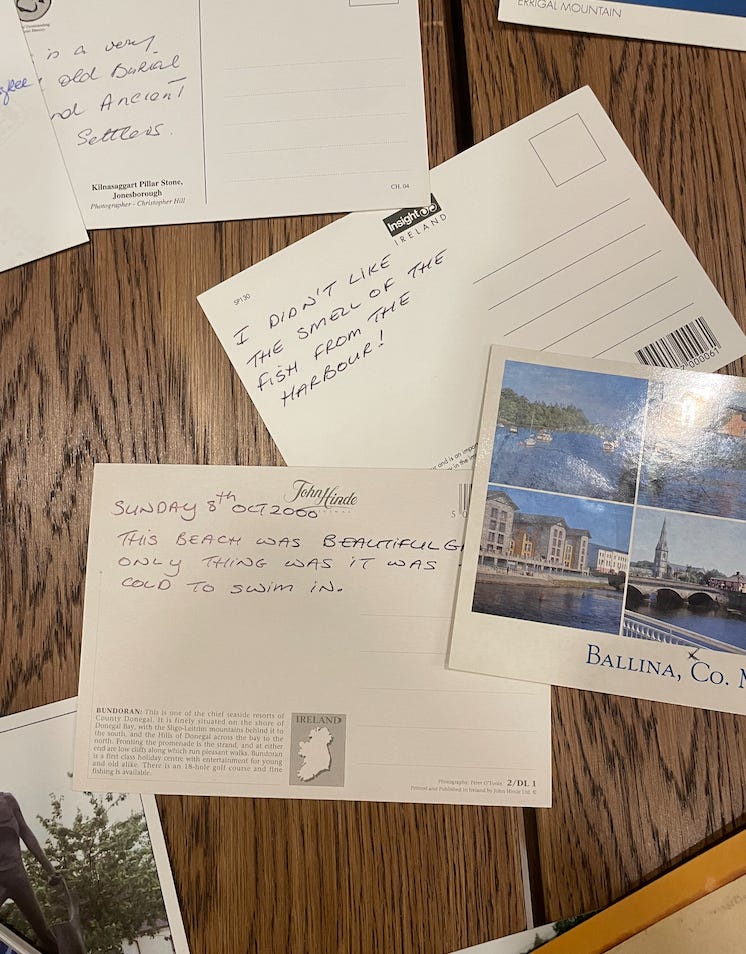 ERRIGAL MOUNTAIN
is a very
old Burial
and Ancient
Settlers.
Kilnasaggart Pillar Stone,
Jonesborough
Photographer - Christopher Hill
CH. 04
Insight
IRELAND
SP130
I DIDN'T LIKE
THE SMELL OF THE
FISH FROM THE
HARBOUR!
John Hinde
SUNDAY 8th OCT 2000
THIS BEACH WAS BEAUTIFUL
ONLY THING WAS IT WAS
COLD TO SWIM IN.
BALLINA, CO.
BUNDORAN: This is one of the chief seaside resorts of
County Donegal. It is finely situated on the shore of
Donegal Bay, with the Sligo-Leitrim mountains behind it to
the south, and the Hills of Donegal across the bay to the
north. Fronting the promenade is the strand, and at either
end are low cliffs along which run pleasant walks. Bundoran
is a first class holiday centre with entertainment for young
and old alike. There is an 18-hole golf course and fine
fishing is available.
IRELAND
Photography: Peter O'Toole 2/DL 1
Printed and Published in Ireland by John Hinde Ltd. ©